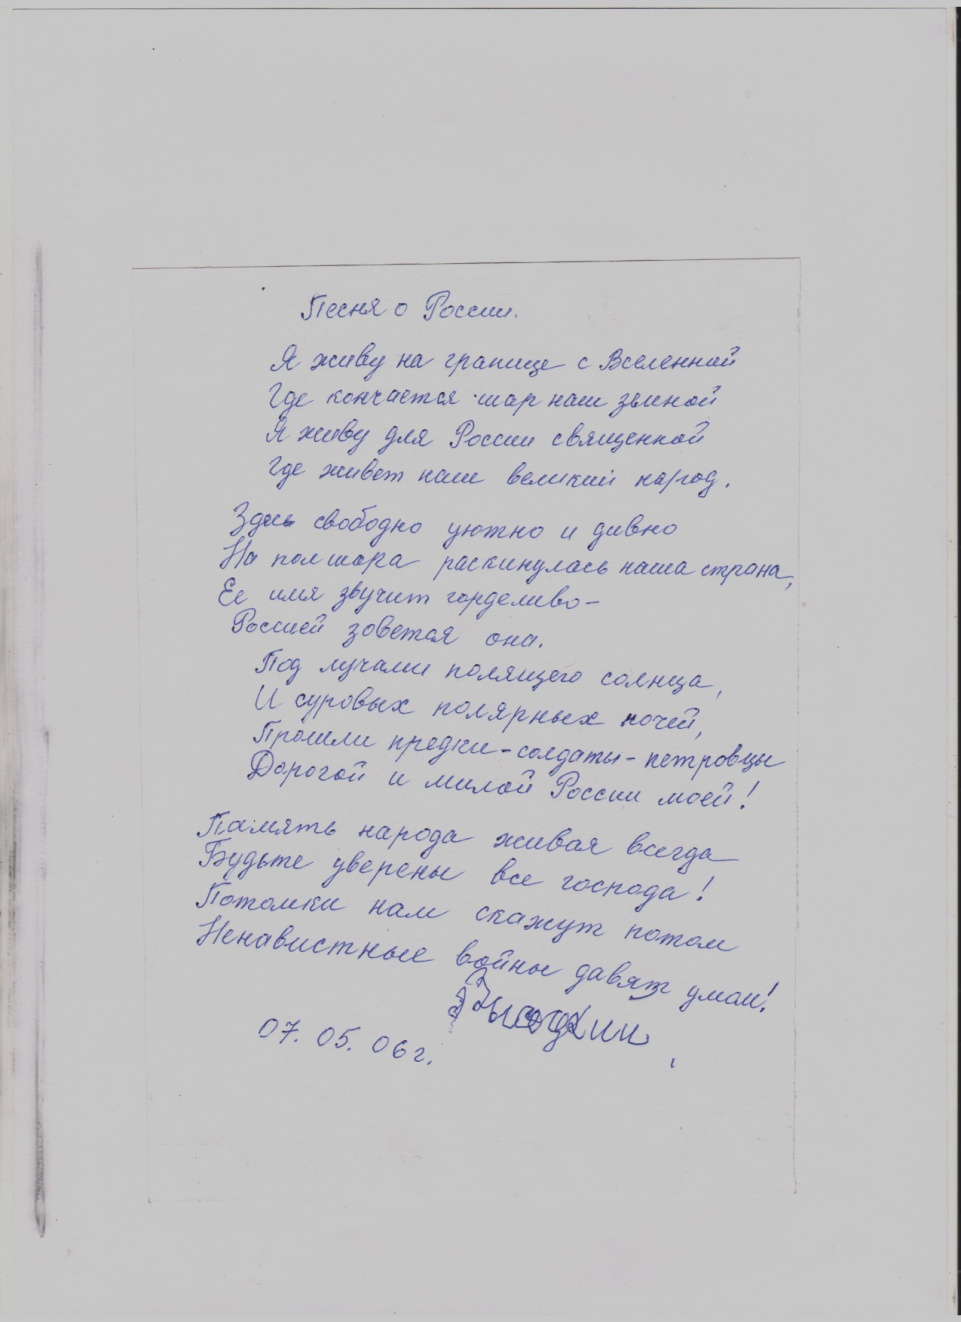 Песня о России.
Я живу на границе с Вселенной
Где кончается шар наш земной
Я живу для России священной
Где живет наш великий народ.
Здесь свободно уютно и дивно
На полшара раскинулась наша страна,
Ее имя звучит горделиво-
Россией зовется она.
Под лучами полящего солнца,
И суровых полярных ночей,
Прошли предки-солдаты-петровцы
Дорогой и милой России моей!
Память народа живая всегда
Будьте уверены все господа!
Потомки нам скажут потом
Ненавистные войны давят умом!
07. 05. 06 г.